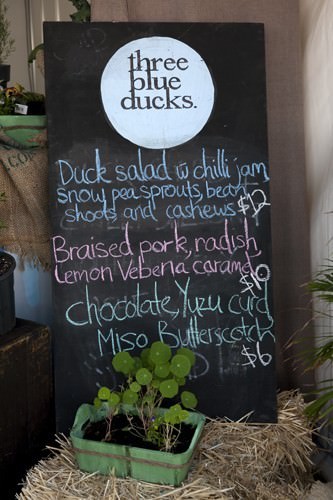 three
blue
ducks.
Duck salad w chilli jam
snow pea sprouts, bean
shoots and cashews $12
Braised pork, radish,
Lemon Verbena caramel
$10
chocolate, Yuzu curd,
Miso Butterscotch
$6